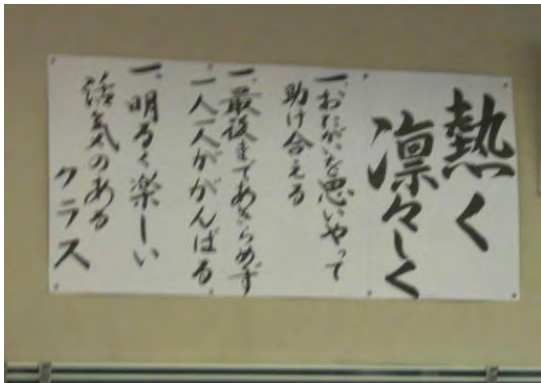 熱く
凛々しく
一、おたがいを思いやって
助け合える
一、最後まであきらめず
一人一人ががんばる、
一、明るく楽しい
活気のある
クラス